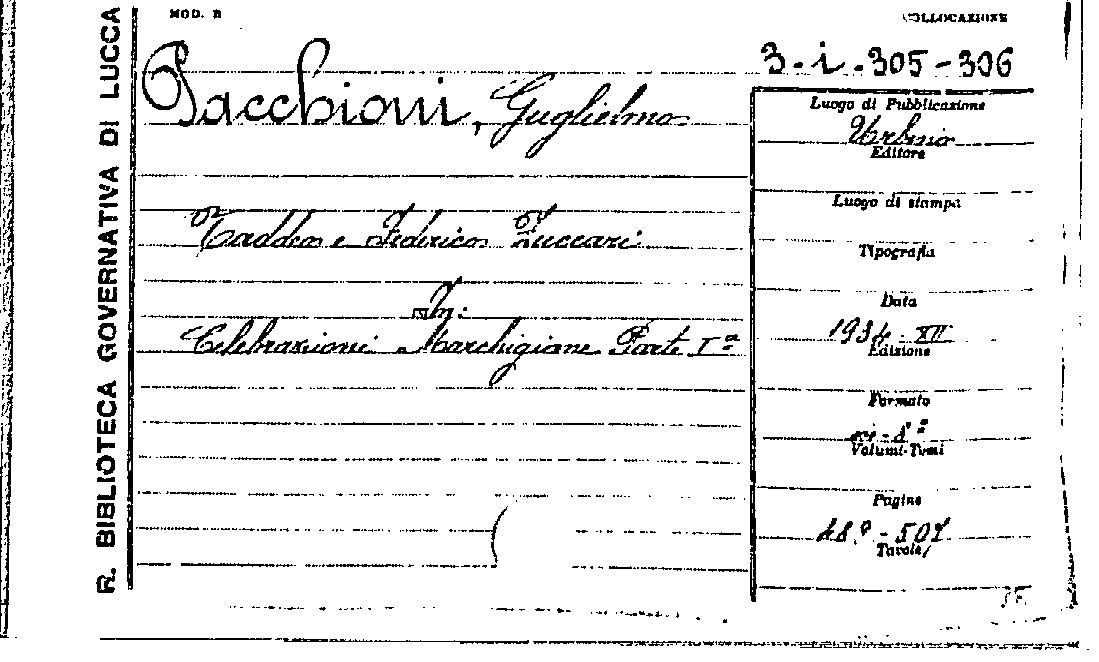 MOD. B
COLLOCAZIONE
R. BIBLIOTECA GOVERNATIVA DI LUCCA
3-i-305-306
Pacchioni, Guglielmo
Taddeo e Federico Zuccari
In:
Celebrazioni Marchigiane Parte Iª
Luogo di Pubblicazione
Urbino
Editore
Luogo di stampa
Tipografia
Data
1934-XII
Edizione
Formato
in-8º
Volumi-Tomi
Pagine
Tavole